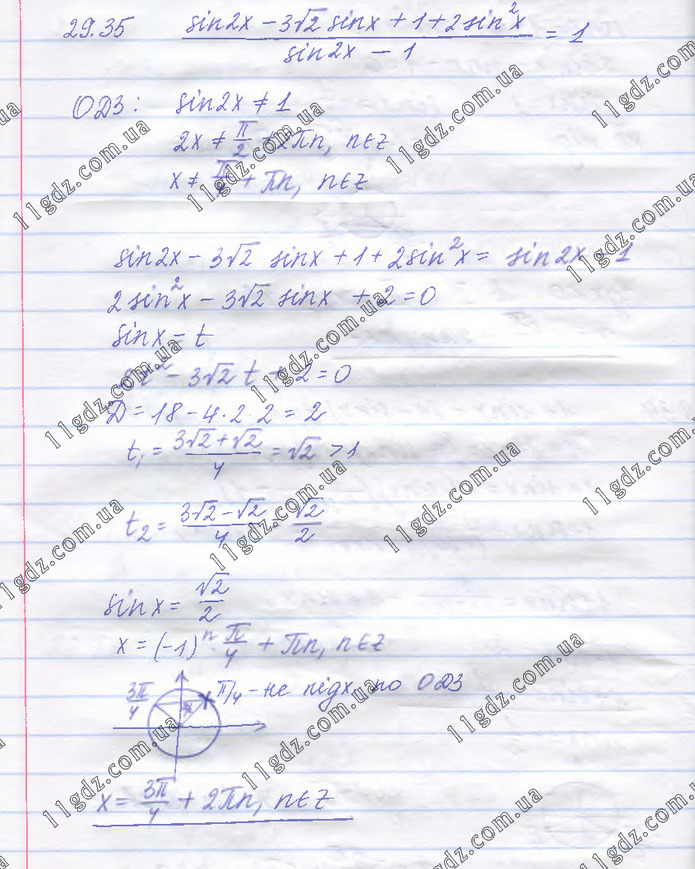 29.35 (sin2x - 3√2 sinx + 1 + 2sin²x)/(sin2x - 1) = 1
ОДЗ: sin2x ≠ 1
2x ≠ π/2 + 2πn, n∈Z
x ≠ π/4 + πn, n∈Z
sin2x - 3√2 sinx + 1 + 2sin²x = sin2x - 1
2sin²x - 3√2 sinx + 2 = 0
sinx = t
2t² - 3√2 t + 2 = 0
D = 18 - 4·2·2 = 2
t₁ = (3√2 + √2)/4 = √2 > 1
t₂ = (3√2 - √2)/4 = √2/2
sinx = √2/2
x = (-1)ⁿ · π/4 + πn, n∈Z
3π/4 π/4 - не підх. по ОДЗ
x = 3π/4 + 2πn, n∈Z
11gdz.com.ua